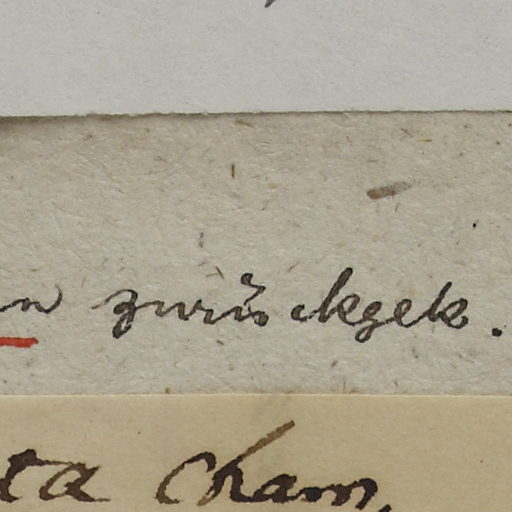 n zurückgek.
ta Cham.